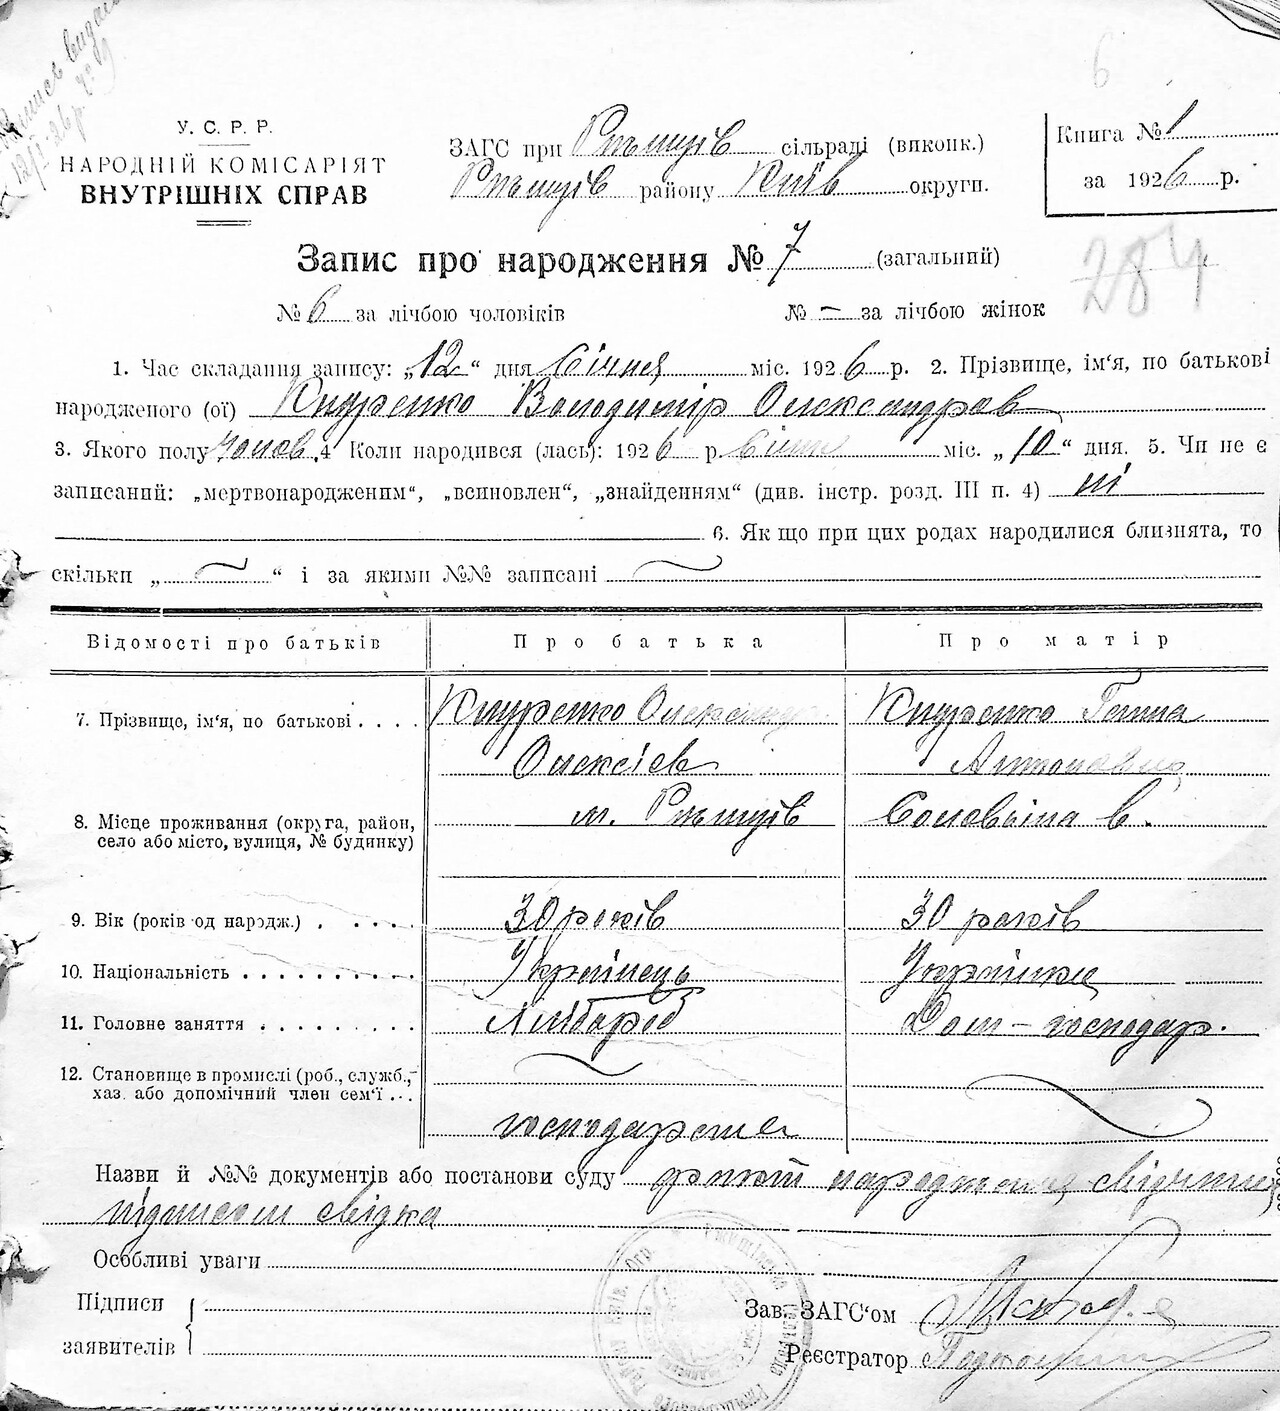 6
У. С. Р. Р.
НАРОДНІЙ КОМІСАРІЯТ
ВНУТРІШНІХ СПРАВ
ЗАГС при Ржищів сільраді (виконк.)
Ржищів району Київ округи.
Книга № 1
за 1926 р.
Запис про народження № 7 (загальний)
284
№ 6 за лічбою чоловіків № — за лічбою жінок
1. Час складання запису: „12“ дня Січня міс. 1926 р. 2. Прізвище, ім‘я, по батькові
народженого (ої) Кнуренко Володимір Олександров
3. Якого полу чолов. 4 Коли народився (лась): 1926 р. Січня міс. „10“ дня. 5. Чи не є
записаний: „мертвонародженим“, „всиновлен“, „знайденням“ (див. інстр. розд. III п. 4) ні
6. Як що при цих родах народилися близнята, то
скільки „ “ і за якими №№ записані
Відомості про батьків Про батька Про матір
7. Прізвище, ім‘я, по батькові . . . . Кнуренко Олександр Кнуренко Ганна
Олексієв Антоновна
8. Місце проживання (округа, район, м. Ржищів Соловьіна в.
село або місто, вулиця, № будинку)
9. Вік (років од народж.) . . . . . 30 років 30 років
10. Національність . . . . . . . . . . Українець Українка
11. Головне заняття . . . . . . . . . Хлібороб Дом-господар.
12. Становище в промислі (роб., служб.,
хаз. або допомічний член сем‘ї . . .
господарства
Назви й №№ документів або постанови суду факт народження свідчить
підписом свідка
Особливі уваги
Підписи
заявителів
Зав. ЗАГС‘ом
Реєстратор